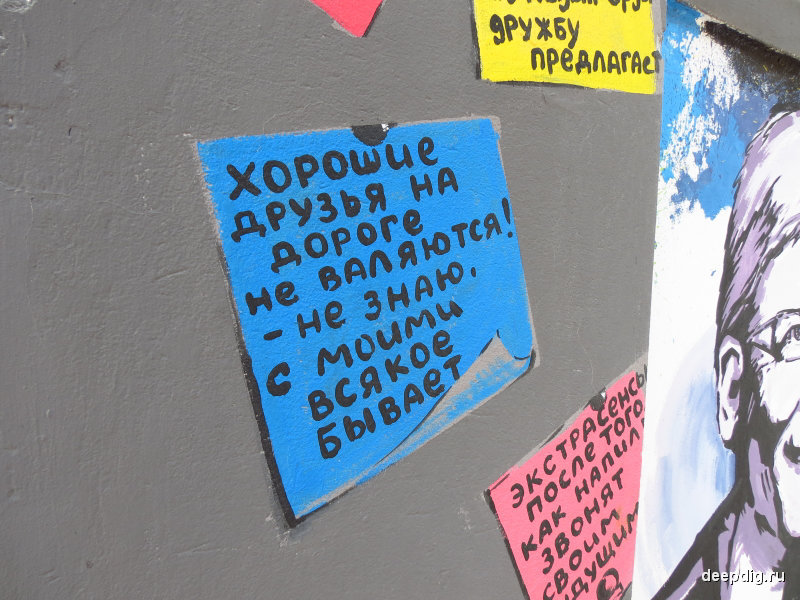 дружбу
предлагает
Хорошие
друзья на
дороге
не валяются!
- не знаю,
с моими
всякое
бывает
экстрасенсы
после того
как напил
звонят
своим
deepdig.ru